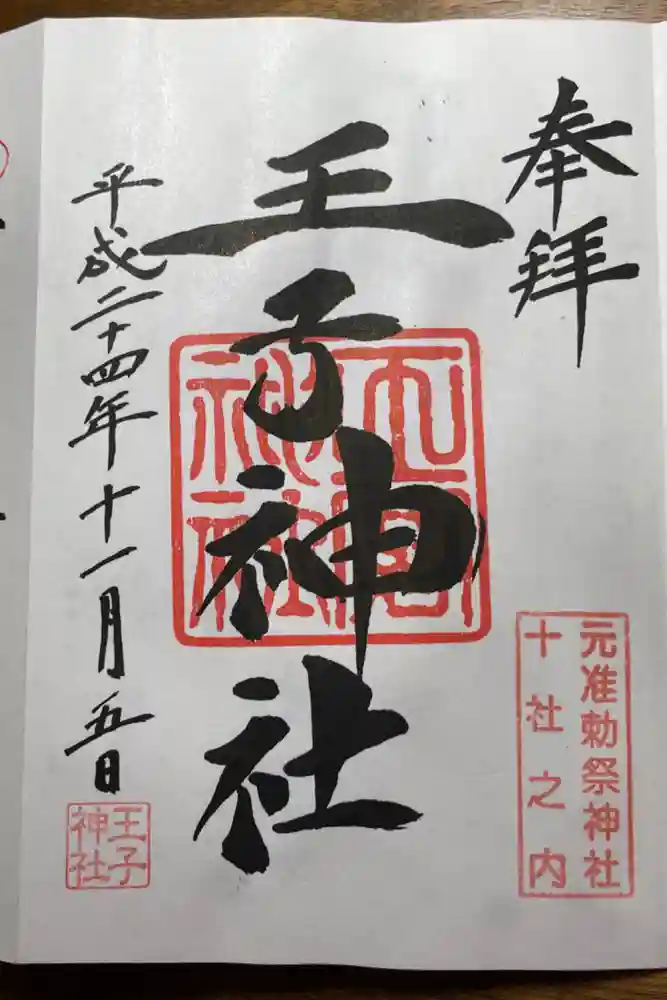 奉拝
元准勅祭神社
十社之内
王子神社
平成二十四年十一月五日
王子
神社